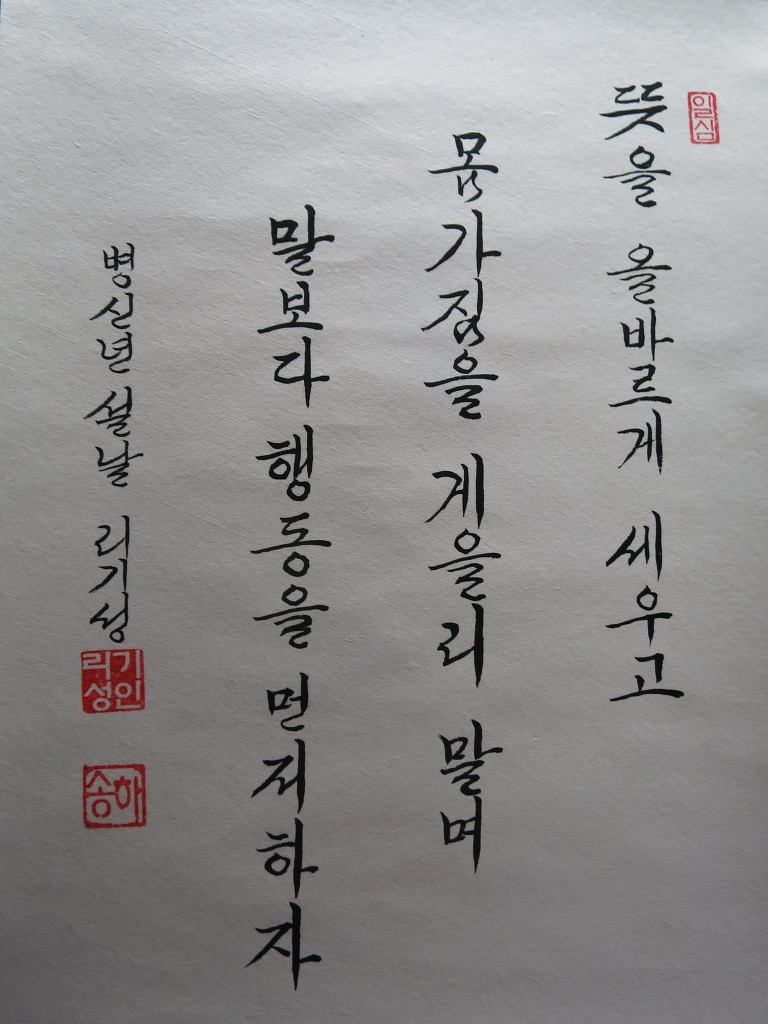 일심
뜻을 올바르게 세우고
몸가짐을 게을리 말며
말보다 행동을 먼저하자
병신년 설날 리기성
리기성인
송해